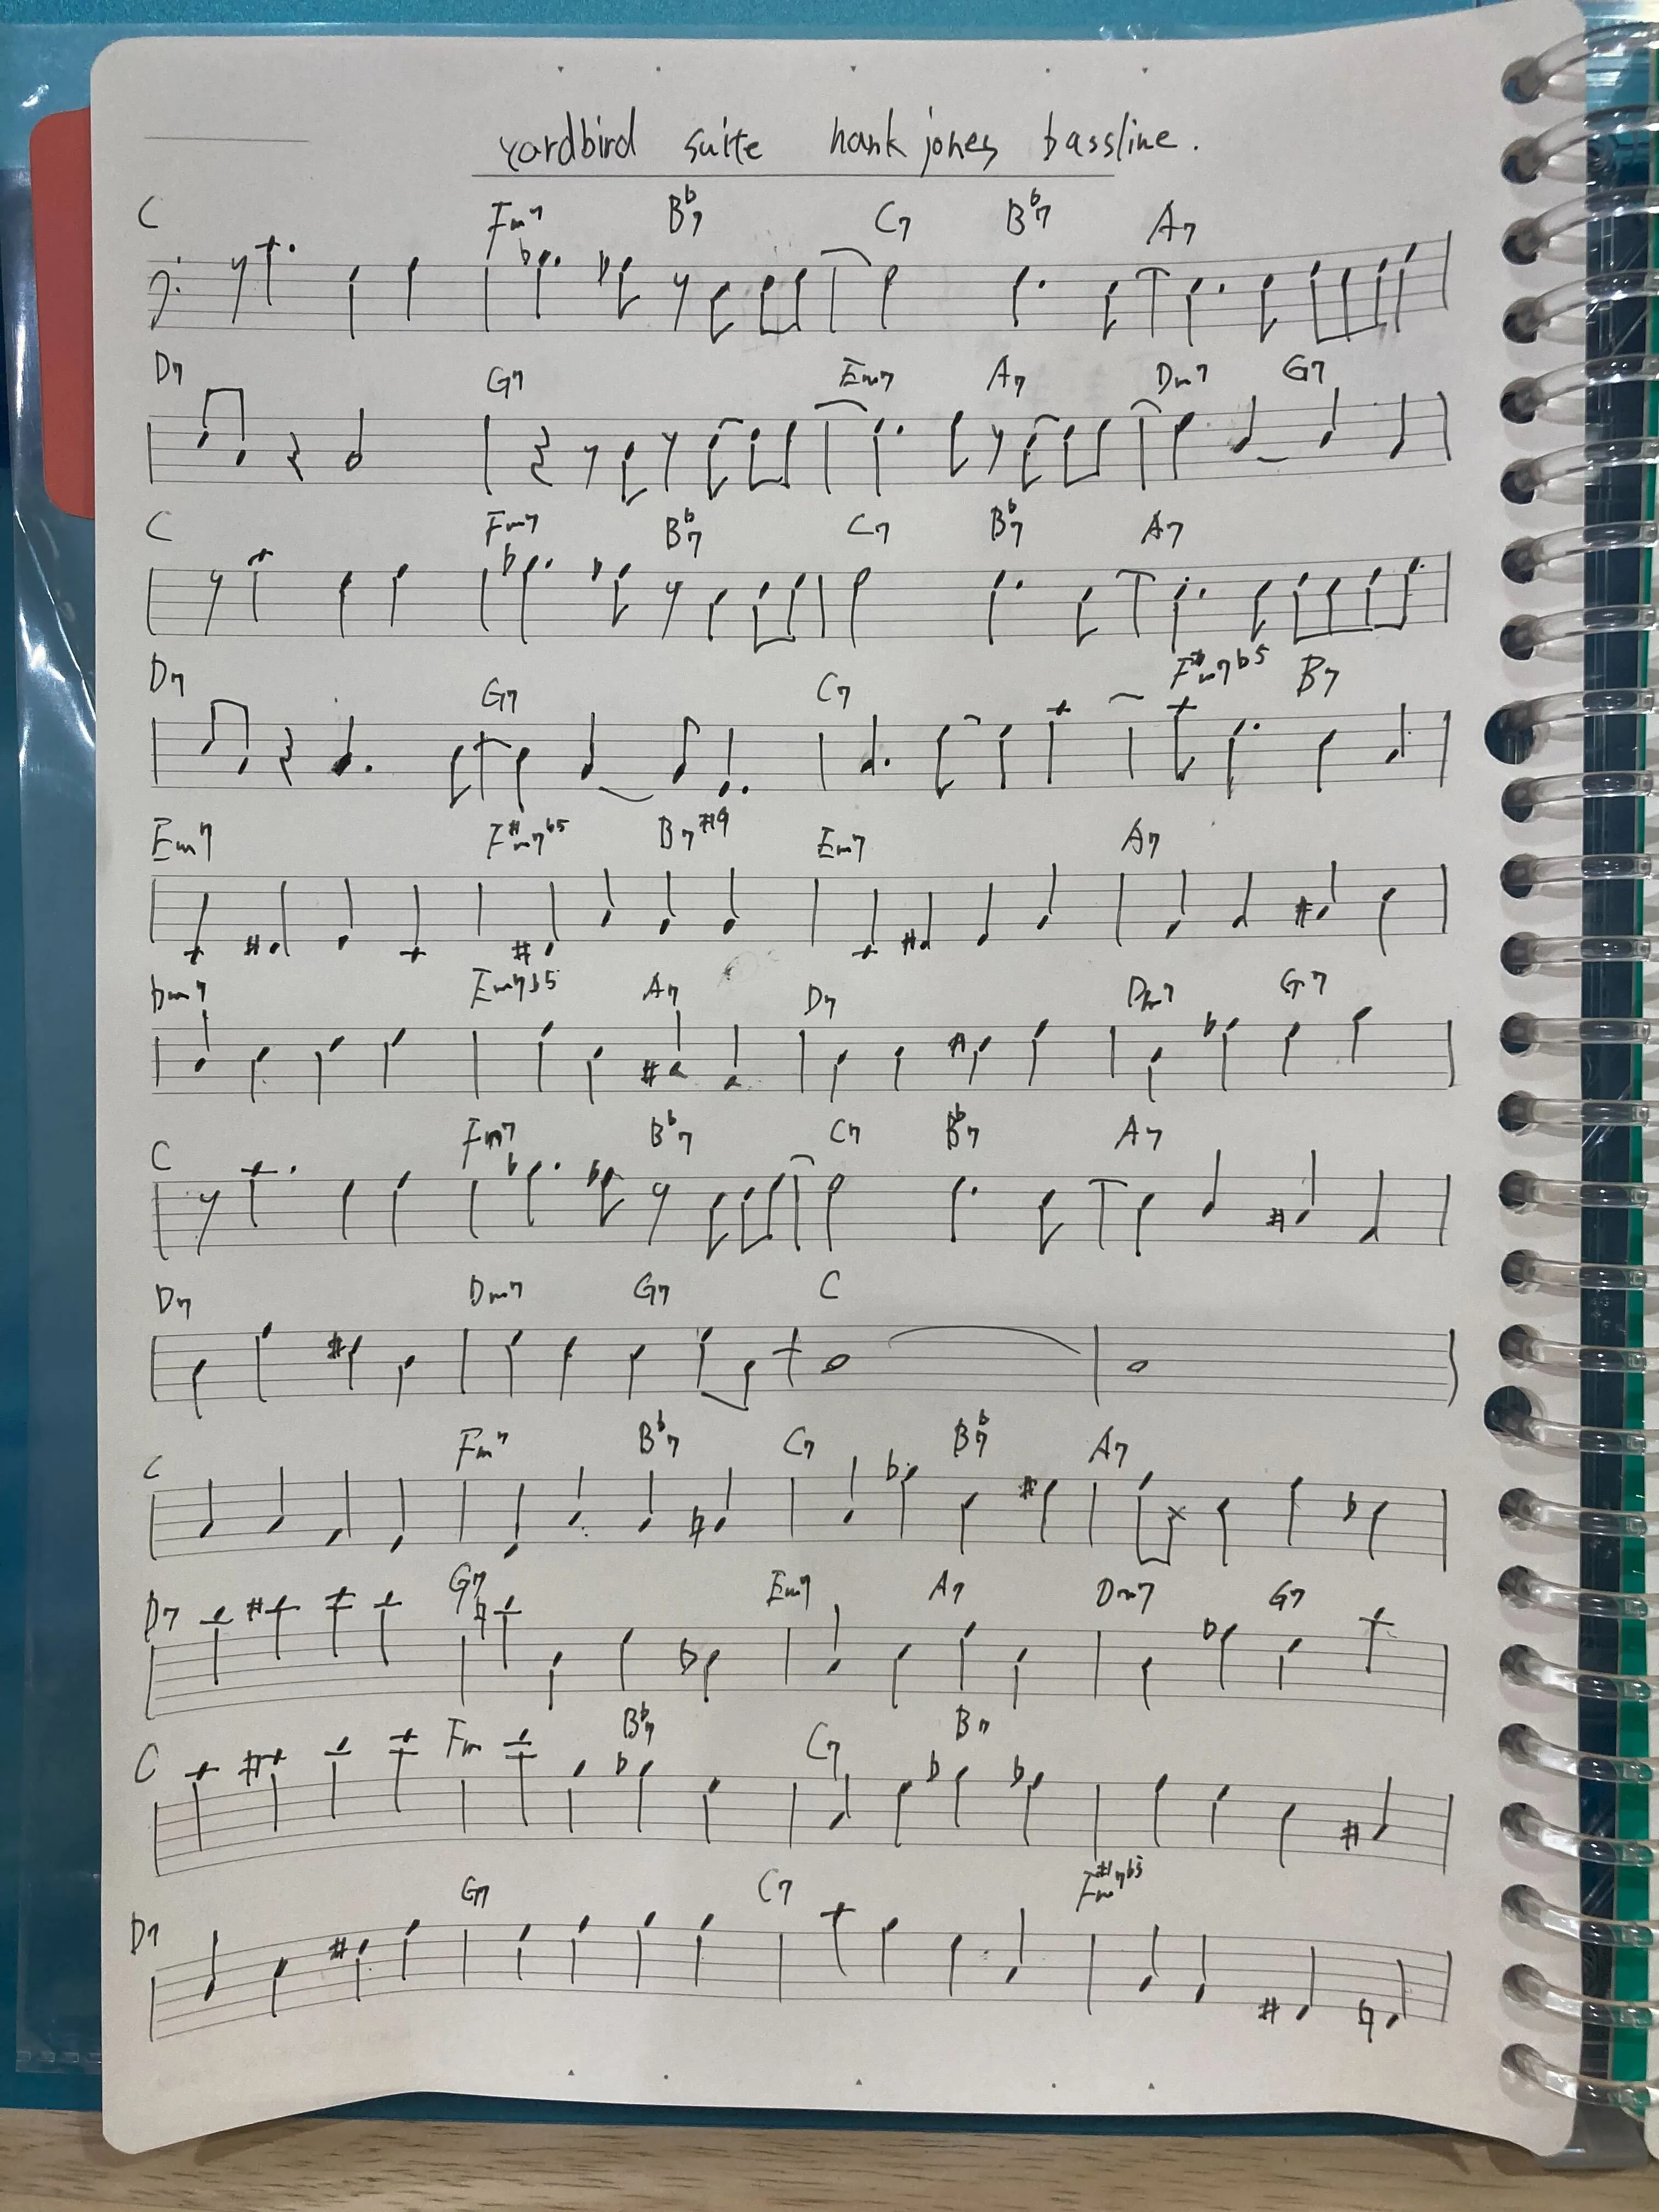 yardbird suite hank jones bassline.
C Fm7 B♭7 C7 B♭7 A7
D7 G7 Em7 A7 Dm7 G7
C Fm7 B♭7 C7 B♭7 A7
D7 G7 C7 F#m7b5 B7
Em7 F#m7b5 B7#9 Em7 A7
Dm7 Em7b5 A7 D7 Dm7 G7
C Fm7 B♭7 C7 B♭7 A7
D7 Dm7 G7 C
C Fm7 B♭7 C7 B♭7 A7
D7 G7 Em7 A7 Dm7 G7
C Fm B♭7 C7 B7
D7 G7 C7 F#m7b5